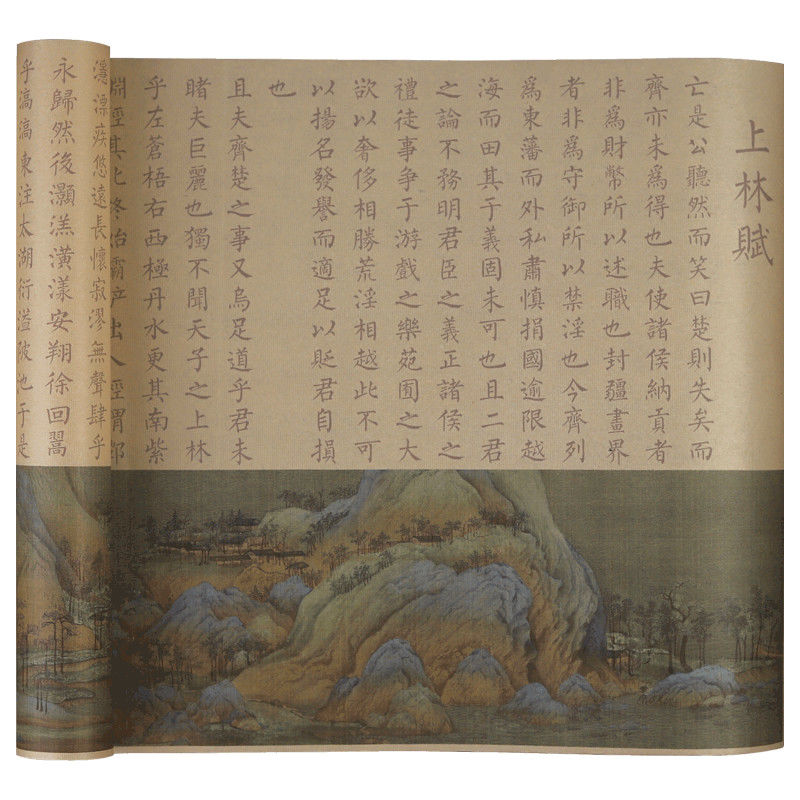 上林賦
亡是公聽然而笑曰楚則失矣而
齊亦未爲得也夫使諸侯納貢者
非爲財幣所以述職也封疆畫界
者非爲守御所以禁淫也今齊列
爲東藩而外私肅慎捐國逾限越
海而田其于義固未可也且二君
之論不務明君臣之義正諸侯之
禮徒事爭于游戲之樂苑囿之大
欲以奢侈相勝荒淫相越此不可
以揚名發譽而適足以貶君自損
也
且夫齊楚之事又烏足道乎君未
睹夫巨麗也獨不聞天子之上林
乎左蒼梧右西極丹水更其南紫
淵徑其北終始霸產出入涇渭
漂疾悠遠長懷寂漻無聲肆乎
永歸然後灝溔潢漾安翔徐回翯
乎滈滈東注太湖衍溢陂池于是